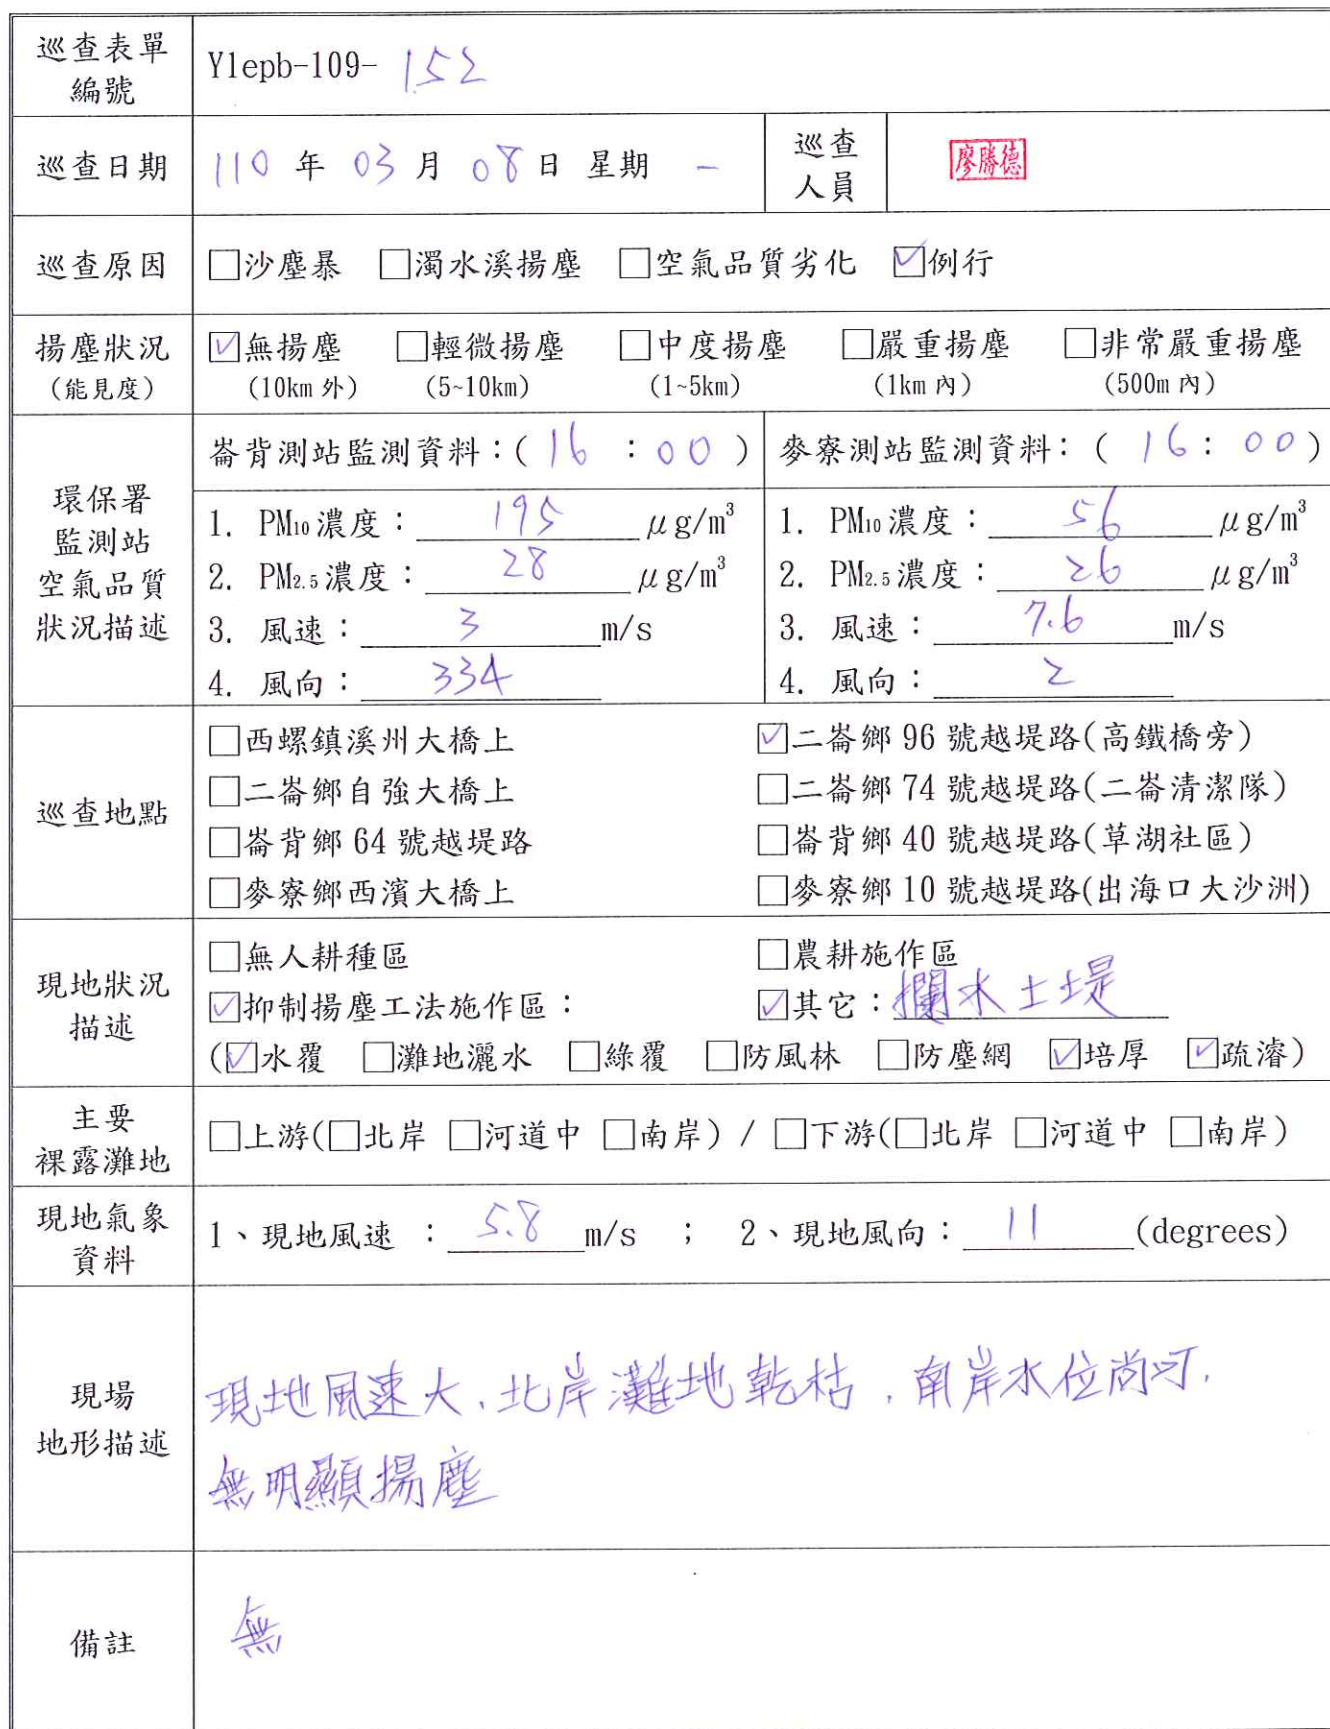 巡查表單
編號
Ylepb-109- 152
巡查日期
110 年 03 月 08 日 星期 一
巡查
人員
廖勝德
巡查原因
□沙塵暴 □濁水溪揚塵 □空氣品質劣化 ☑例行
揚塵狀況
(能見度)
☑無揚塵 □輕微揚塵 □中度揚塵 □嚴重揚塵 □非常嚴重揚塵
(10km 外) (5~10km) (1~5km) (1km 內) (500m 內)
環保署
監測站
空氣品質
狀況描述
崙背測站監測資料：( 16 : 00 )
1. PM10 濃度： 195 μg/m³
2. PM2.5 濃度： 28 μg/m³
3. 風速： 3 m/s
4. 風向： 334
麥寮測站監測資料： ( 16 : 00 )
1. PM10 濃度： 56 μg/m³
2. PM2.5 濃度： 26 μg/m³
3. 風速： 7.6 m/s
4. 風向： 2
巡查地點
□西螺鎮溪州大橋上 ☑二崙鄉 96 號越堤路(高鐵橋旁)
□二崙鄉自強大橋上 □二崙鄉 74 號越堤路(二崙清潔隊)
□崙背鄉 64 號越堤路 □崙背鄉 40 號越堤路(草湖社區)
□麥寮鄉西濱大橋上 □麥寮鄉 10 號越堤路(出海口大沙洲)
現地狀況
描述
□無人耕種區 □農耕施作區
☑抑制揚塵工法施作區： ☑其它：攔水土堤
(☑水覆 □灘地灑水 □綠覆 □防風林 □防塵網 ☑培厚 ☑疏濬)
主要
裸露灘地
□上游(□北岸 □河道中 □南岸) / □下游(□北岸 □河道中 □南岸)
現地氣象
資料
1、現地風速 ： 5.8 m/s ； 2、現地風向： 11 (degrees)
現場
地形描述
現地風速大，北岸灘地乾枯，南岸水位尚可，
無明顯揚塵
備註
無